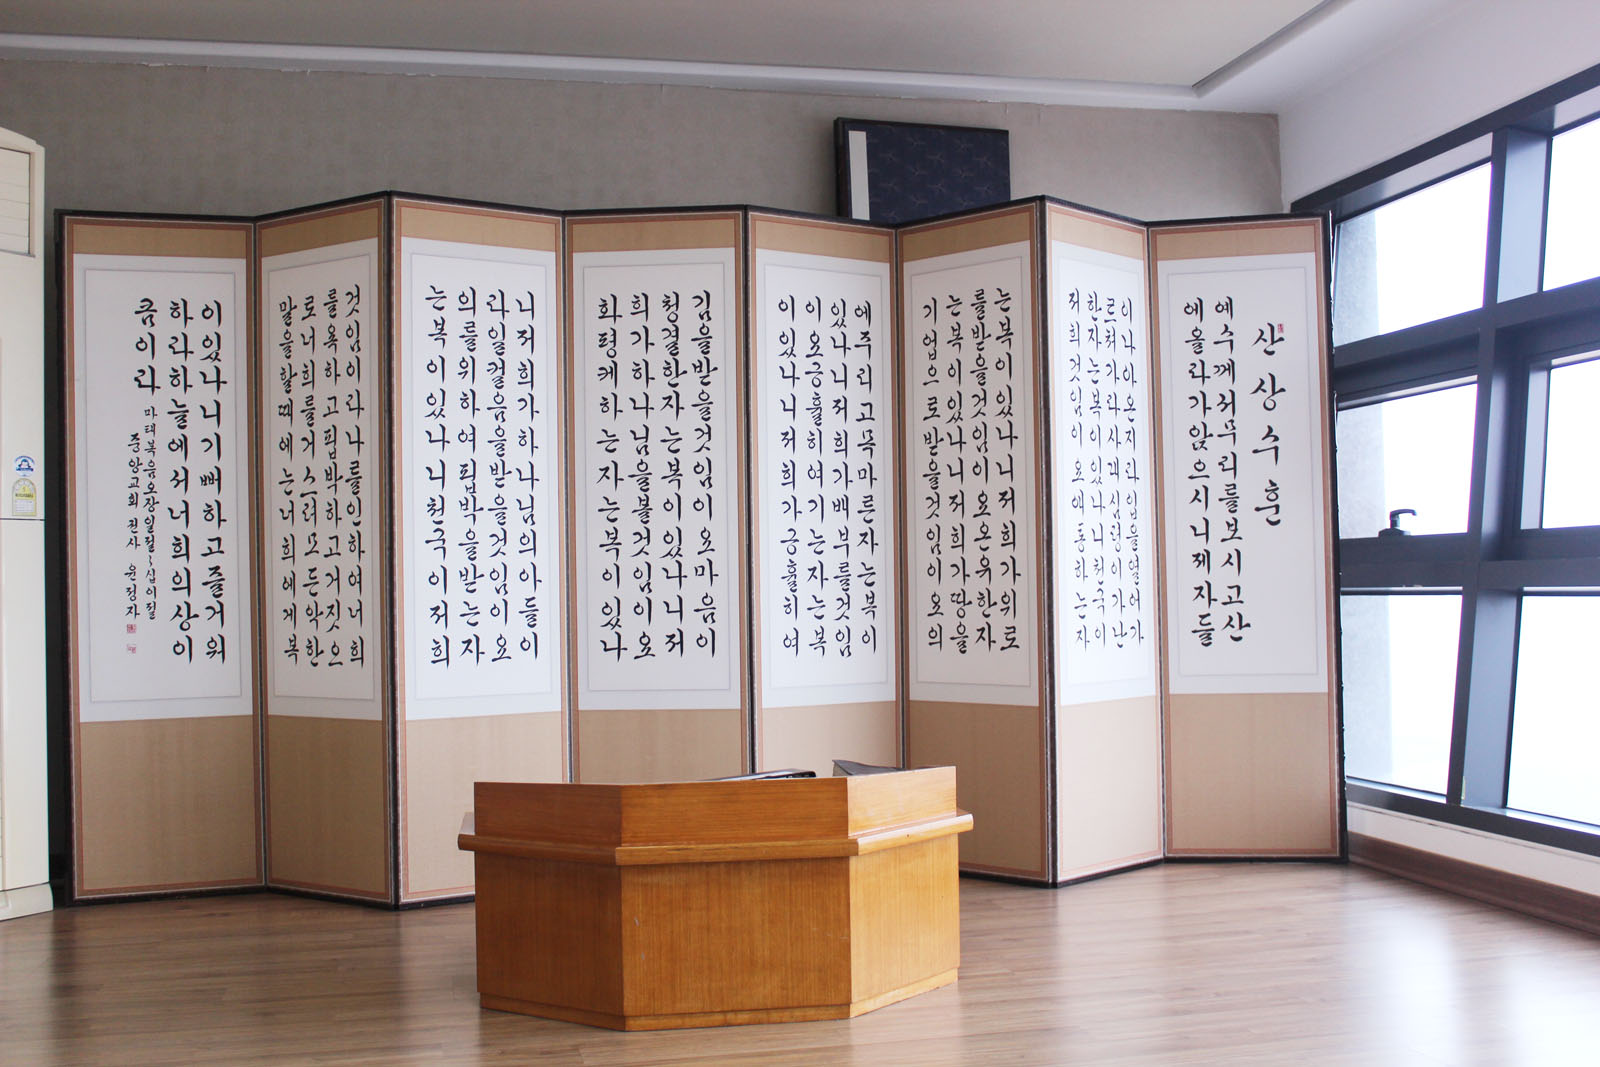 산상수훈
예수께서무리를보시고산
에올라가앉으시니제자들
이나아온지라입을열어가
르쳐가라사대심령이가난
한자는복이있나니천국이
저희것임이요애통하는자
는복이있나니저희가위로
를받을것임이요온유한자
는복이있나니저희가땅을
기업으로받을것임이요의
에주리고목마른자는복이
있나니저희가배부를것임
이요긍휼히여기는자는복
이있나니저희가긍휼히여
김을받을것임이요마음이
청결한자는복이있나니저
희가하나님을볼것임이요
화평케하는자는복이있나
니저희가하나님의아들이
라일컬음을받을것임이요
의를위하여핍박을받는자
는복이있나니천국이저희
것임이라나를인하여너희
를욕하고핍박하고거짓으
로너희를거스려모든악한
말을할때에는너희에게복
이있나니기뻐하고즐거워
하라하늘에서너희의상이
큼이라
마태복음오장일절~십이절
중앙교회 권사 윤정자